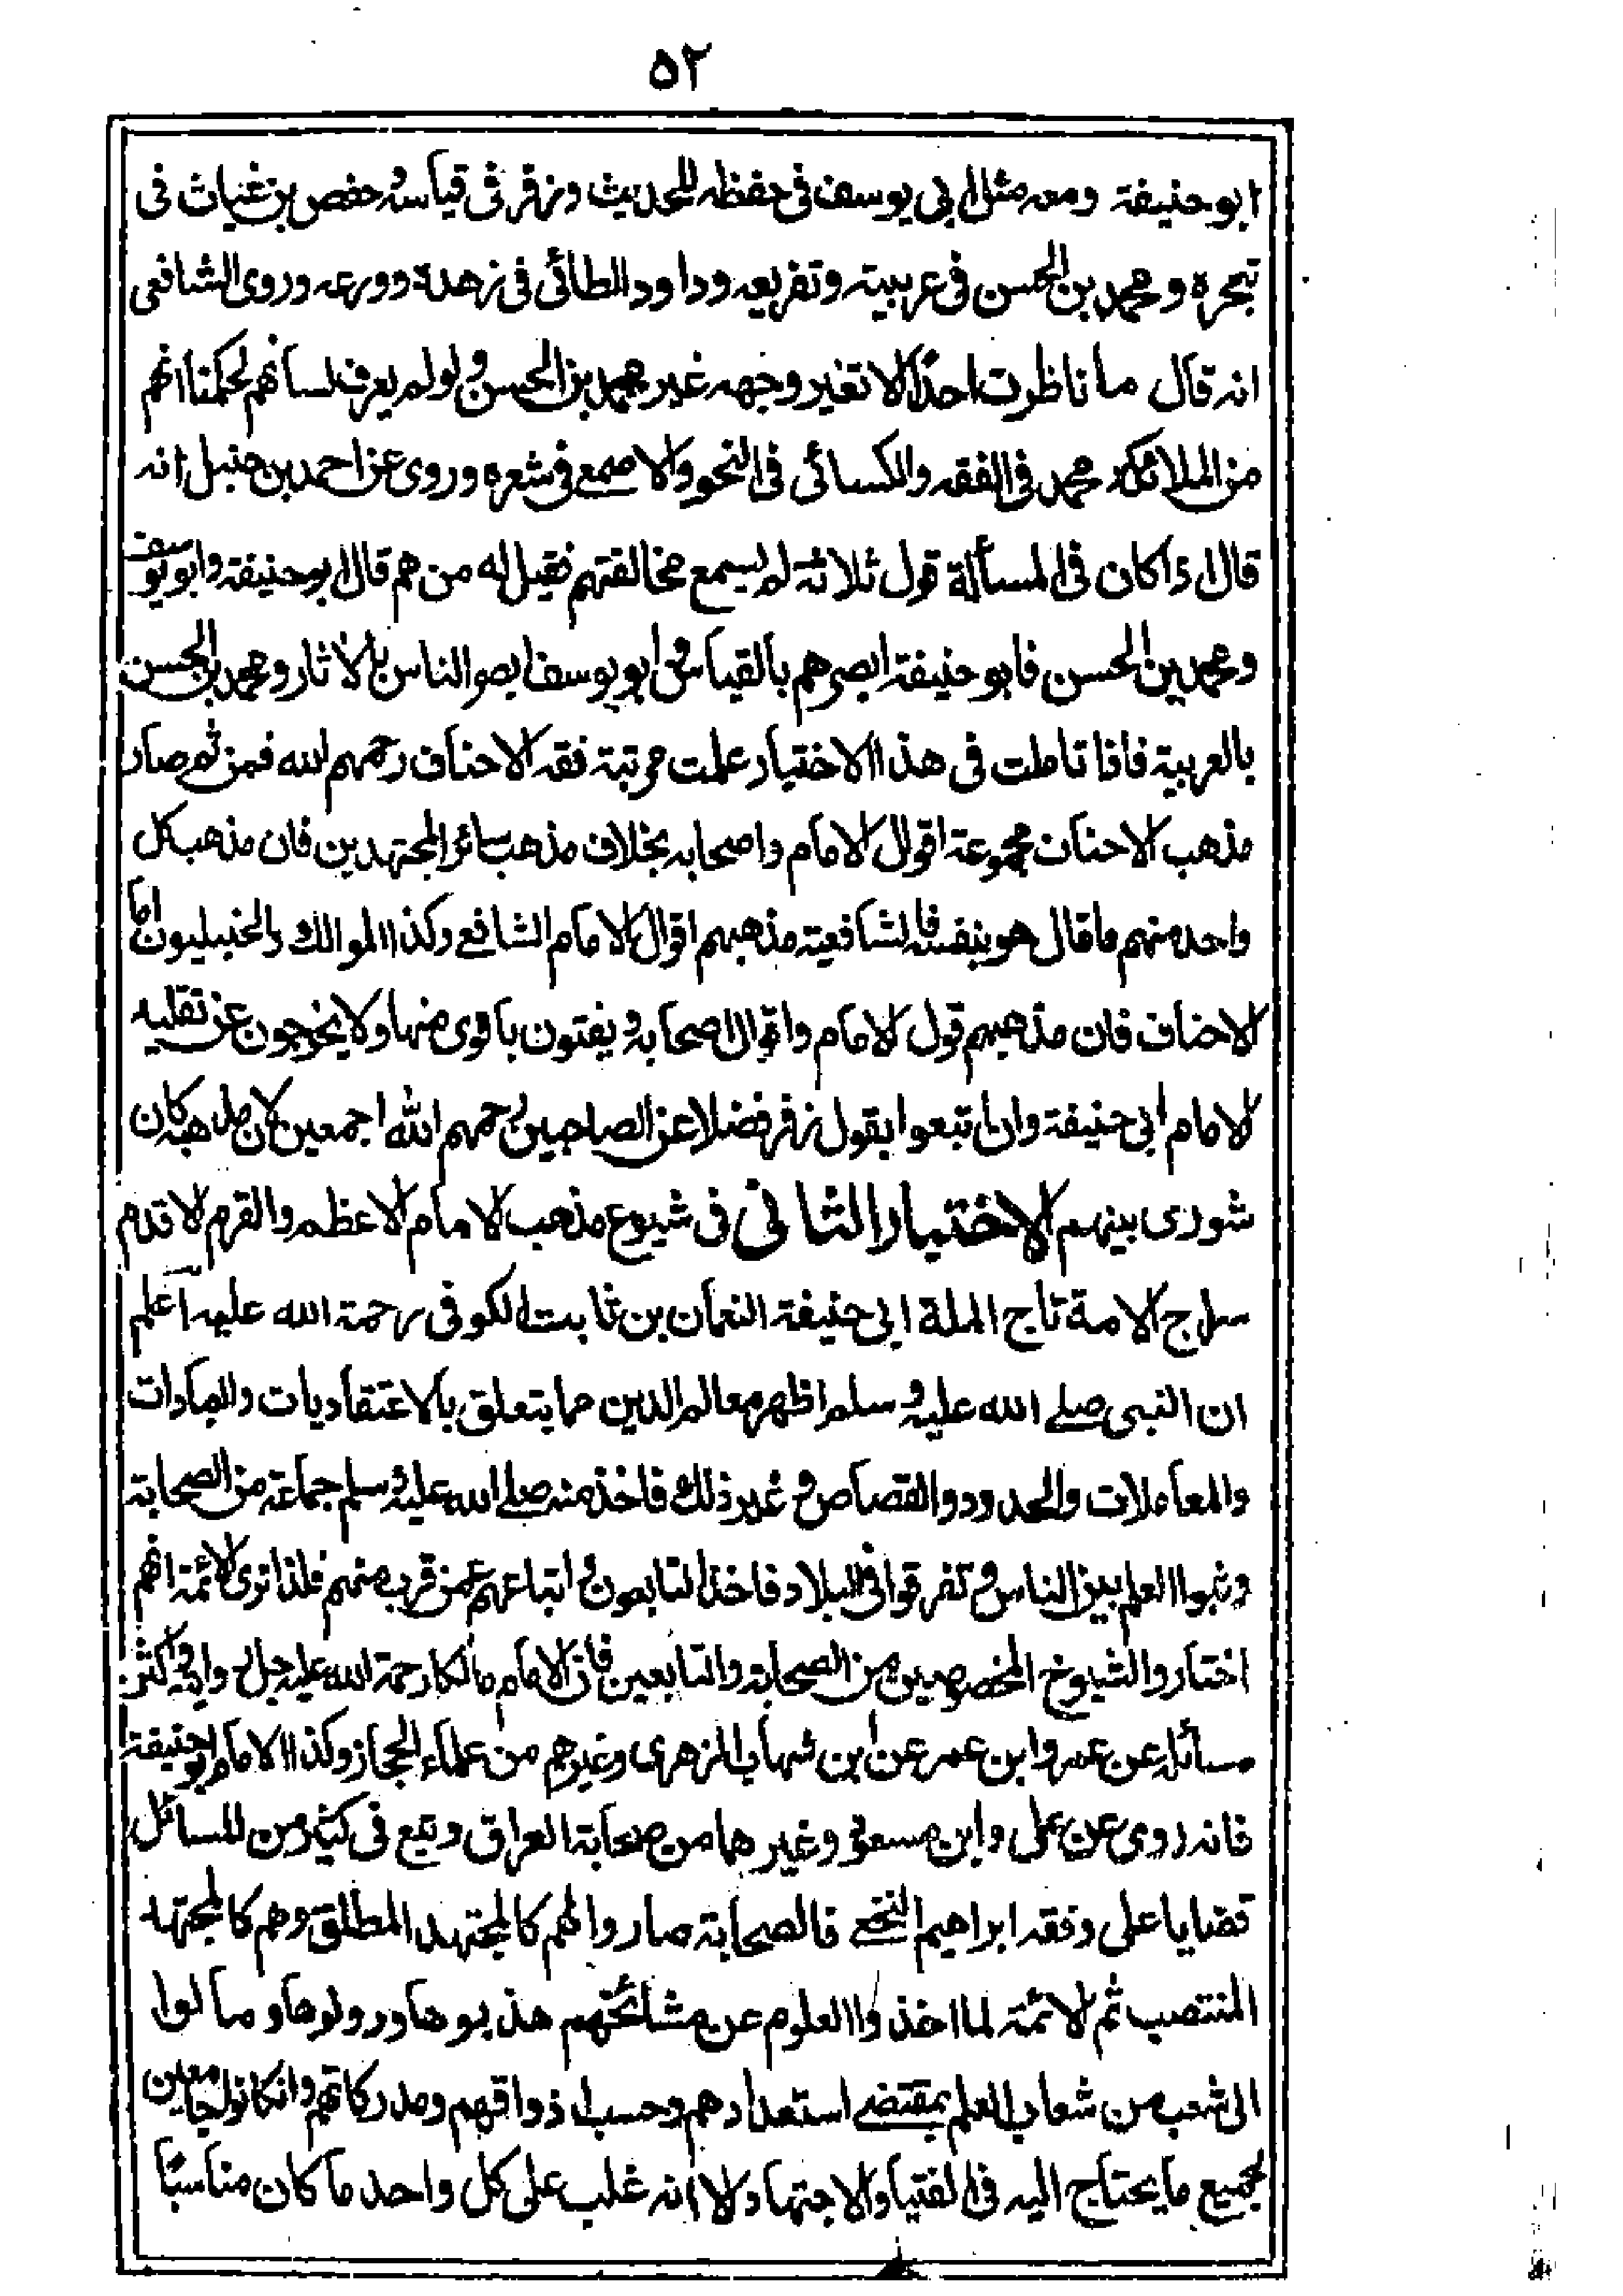 ٥٢
ابو حنيفة ومعه مثل ابى يوسف فى حفظه للحديث وزفر فى قياسه وحفص بن غياث فى
تبحره ومحمد بن الحسن فى عربيته وتفريعه وداود الطائى فى زهدة وورعه وروى الشافعى
انه قال ما ناظرت احدًا الا تغير وجهه غير محمد بن الحسن ولو لم يعرف لسانهم لحكمنا انهم
من الملائكة محمد فى الفقه والكسائى فى النحو والاصمع فى شعره وروى عن احمد بن حنبل انه
قال اذا كان فى المسألة قول ثلاثة لم يسمع مخالفتهم فقيل له من هم قال ابو حنيفة وابو يوسف
ومحمد بن الحسن فابو حنيفة ابصرهم بالقياس وابو يوسف ابصر الناس بالاثار ومحمد بن الحسن
بالعربية فاذا تاملت فى هذا الاختيار علمت مرتبة فقه الاحناف رحمهم الله فمن ثم صار
مذهب الاحناف مجموعة اقوال الامام واصحابه بخلاف مذهب سائر المجتهدين فان مذهب كل
واحد منهم ما قال هو بنفسه فالشافعية مذهبهم اقوال الامام الشافع وكذا الموالك والحنبليون اما
الاحناف فان مذهبهم قول الامام واقوال اصحابه ويفتون باقوى منها ولا يخرجون عن تقليد
الامام ابى حنيفة وان اتبعوا بقول زفر فضلا عن الصاحبين رحمهم الله اجمعين لان مذهبه كان
شورى بينهم الاختيار الثانى فى شيوع مذهب الامام الاعظم والقرم الاقدم
سراج الامة تاج الملة ابى حنيفة النعمان بن ثابت الكوفى رحمة الله عليه اعلم
ان النبى صلے الله عليه وسلم اظهر معالم الدين مما يتعلق بالاعتقاديات والعبادات
والمعاملات والحدود والقصاص وغير ذلك فاخذ منه صلے الله عليه وسلم جماعة من الصحابة
وبثوا العلم بين الناس وتفرقوا فى البلاد فاخذ التابعون واتباعهم عمن قرب منهم فلذا ترى الائمة انهم
اختاروا الشيوخ المخصوصين من الصحابة والتابعين فان الامام مالكا رحمة الله عليه جل روايته واكثر
مسائله عن عمر وابن عمر عن ابن شهاب الزهرى وغيرهم من علماء الحجاز وكذا الامام ابو حنيفة
فانه روى عن على وابن مسعود وغيرهما من صحابة العراق وتبع فى كثير من المسائل
قضايا على وفقه ابراهيم النخعے فالصحابة صاروا لهم كالمجتهد المطلق وهم كالمجتهد
المنتصب ثم الائمة لما اخذوا العلوم عن مشائخهم هذبوها ودولوها ومالوا
الى شعب من شعاب العلم بمقتضے استعدادهم وحسب اذواقهم ومدركاتهم وان كانوا جامعين
لجميع ما يحتاج اليه فى الفتيا والاجتهاد الا انه غلب على كل واحد ما كان مناسبًا